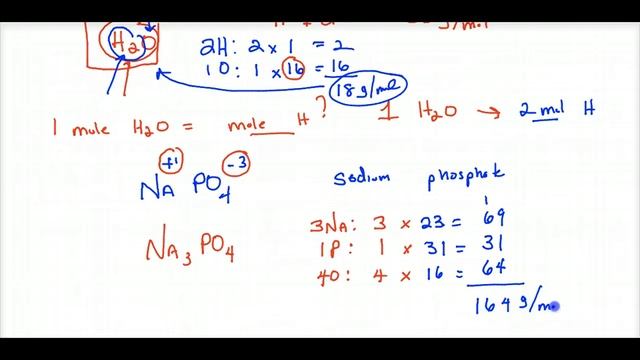 H₂O
2H: 2 × 1 = 2
1O: 1 × 16 = 16
18 g/mol
1 mole H₂O = mole ___ H ?
1 H₂O → 2 mol H
+1 -3
NA PO₄
Sodium phosphate
1
3NA: 3 × 23 = 69
NA₃ PO₄
1P: 1 × 31 = 31
4O: 4 × 16 = 64
164 g/m